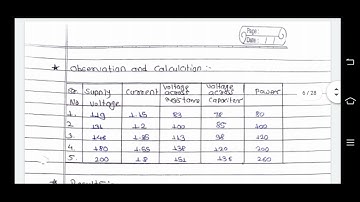 Page:
Date: / /
* Observation and Calculation :-
Sr. No. Supply Voltage Current Voltage across Resistance Voltage across Capacitor Power
1. 119 1.15 83 78 80
2. 1.2 100 85 100
3. 1.35 113 98 120
4. 180 1.55 138 120 200
5. 200 1.8 151 136 260
6/28
* Results:-